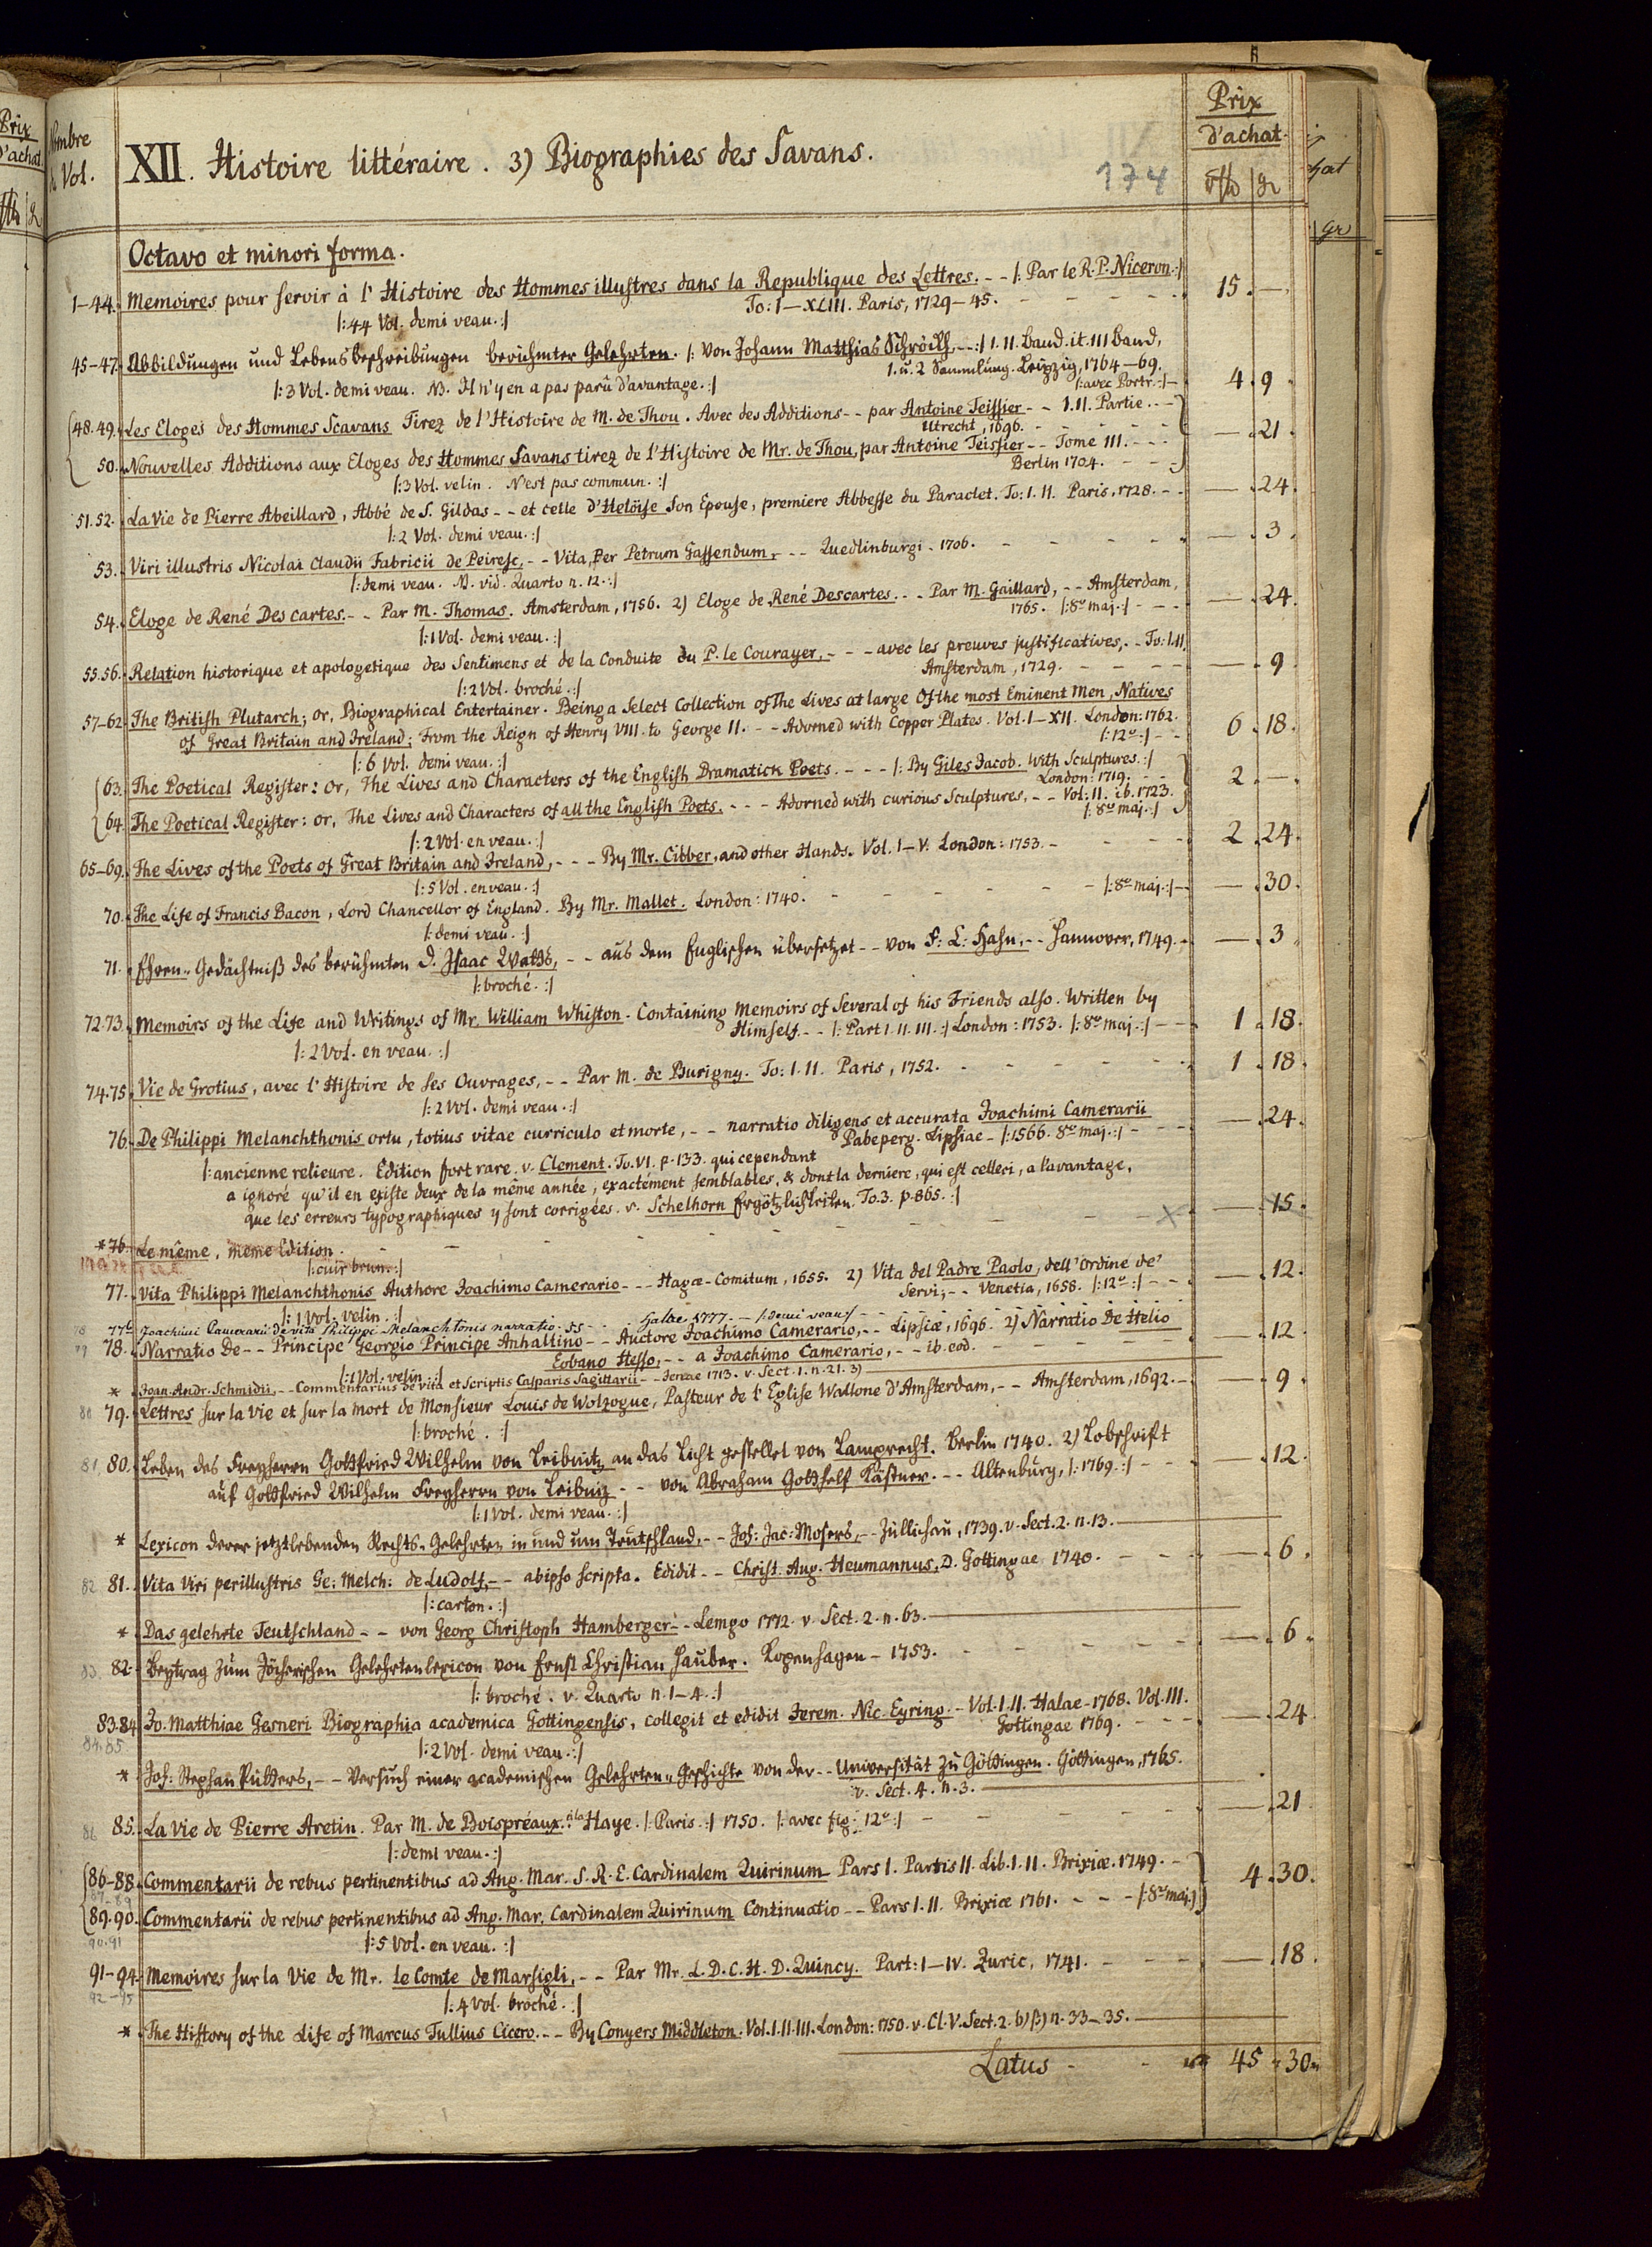 Prix
d'achat.
Nombre
de Vol.
XII. Histoire littéraire. 3) Biographies des Savans.
174
Prix
d'achat.
gr
Octavo et minori forma.
1-44. Memoires pour servir à l'Histoire des Hommes illustres dans la Republique des Lettres. -- |: Par le R. P. Niceron. :|
To: I-XLIII. Paris, 1729-45. 15. —
|: 44 Vol. demi veau. :|
45-47. Abbildungen und Lebensbeschreibungen berühmter Gelehrten. |: von Johann Matthias Schröckh, --:| I. II. Band. it. III Band,
1. u. 2 Sammlung. Leipzig, 1764-69.
|: 3 Vol. demi veau. NB. Il n'y en a pas parû d'avantage. :| |: avec Portr. :| 4. 9.
48. 49. Les Eloges des Hommes Scavans Tirez de l'Histoire de M. de Thou. Avec des Additions -- par Antoine Teissier -- I. II. Partie. --
Utrecht, 1696. — 21.
50. Nouvelles Additions aux Eloges des Hommes Savans tirez de l'Histoire de Mr. de Thou, par Antoine Teissier -- Tome III. ---
Berlin 1704.
|: 3 Vol. velin. N'est pas commun. :|
51. 52. La Vie de Pierre Abeillard, Abbé de S. Gildas -- et celle d'Heloïse son Epouse, premiere Abbesse du Paraclet. To: I. II. Paris, 1728. -- — 24.
|: 2 Vol. demi veau. :|
53. Viri illustris Nicolai Claudii Fabricii de Peiresc, -- Vita, per Petrum Gassendum, --- Quedlinburgi. 1706. — 3.
|: demi veau. NB. vid. Quarto n. 12. :|
54. Eloge de René Descartes. -- Par M. Thomas. Amsterdam, 1756. 2) Eloge de René Descartes. -- Par M. Gaillard, -- Amsterdam,
1765. |: 8º maj. :| --- — 24.
|: 1 Vol. demi veau. :|
55. 56. Relation historique et apologetique des Sentimens et de la Conduite du P. le Courayer, --- avec les preuves justificatives, -- To: I. II.
Amsterdam, 1729. — 9.
|: 2 Vol. broché. :|
57-62. The British Plutarch; or, Biographical Entertainer. Being a Select Collection of The Lives at large Of the most Eminent Men, Natives
of Great Britain and Ireland; From the Reign of Henry VIII. to George II. -- Adorned with Copper Plates. Vol. I-XII. London: 1762.
|: 12º :| -- 6. 18.
|: 6 Vol. demi veau. :|
63. The Poetical Register: or, The Lives and Characters of the English Dramatick Poets. --- |: By Giles Jacob. With Sculptures. :|
London: 1719. -- 2. —
64. The Poetical Register: or, The Lives and Characters of all the English Poets. --- Adorned with curious Sculptures, -- Vol: II. ib. 1723.
|: 8º maj. :|
|: 2 Vol. en veau. :|
65-69. The Lives of the Poets of Great Britain and Ireland, --- By Mr. Cibber, and other Hands. Vol. I-V. London: 1753. - 2. 24.
|: 5 Vol. en veau. :|
70. The Life of Francis Bacon, Lord Chancellor of England. By Mr. Mallet. London: 1740. |: 8º maj. :| -- — 30.
|: demi veau. :|
71. Ehren-Gedächtniß des berühmten D. Isaac Watts, -- aus dem Englischen übersetzet -- von F: E: Hahn, -- Hannover, 1749. - — 3.
|: broché. :|
72. 73. Memoirs of the Life and Writings of Mr. William Whiston. Containing Memoirs of Several of his Friends also. Written by
Himself -- |: Part I. II. III. :| London: 1753. |: 8º maj. :| -- 1. 18.
|: 2 Vol. en veau. :|
74. 75. Vie de Grotius, avec l'Histoire de ses Ouvrages, -- Par M. de Burigny. To: I. II. Paris, 1752. 1. 18.
|: 2 Vol. demi veau. :|
76. De Philippi Melanchthonis ortu, totius vitae curriculo et morte, -- narratio diligens et accurata Joachimi Camerarii
Pabeperg. Lipsiae - |: 1566. 8º maj. :| — 24.
|: ancienne relieure. Edition fort rare. v. Clement. To. VI. p. 133. qui cependant
a ignoré qu'il en existe deux de la même année, exactément semblables, & dont la derniere, qui est celleci, a l'avantage,
que les erreurs typographiques y sont corrigées. v. Schelhorn Ergötzlichkeiten. To. 3. p. 865. :|
*76. Le même, meme Edition. — 15.
|: cuir brun. :|
77. Vita Philippi Melanchthonis Authore Joachimo Camerario --- Hagæ-Comitum, 1655. 2) Vita del Padre Paolo, dell' Ordine de'
Servi; -- Venetia, 1658. |: 12º :| -- — 12.
|: 1 Vol. velin. :|
77b Joachimi Camerarii de vita Philippi Melanchtonis narratio. Halae 1777. - |: demi veau :|
78. Narratio De -- Principe Georgio Principe Anhaltino -- Auctore Joachimo Camerario, -- Lipsiæ, 1696. 2) Narratio De Helio
Eobano Hesso, -- a Joachimo Camerario, -- ib. eod. — 12.
|: 1 Vol. velin. :|
* Joan. Andr. Schmidii, -- Commentarius de vita et scriptis Casparis Sagittarii -- Jenae 1713. v. Sect. 1. n. 21. 3)
79. Lettres sur la vie et sur la mort de Monsieur Louis de Wolzogue, Pasteur de l'Eglise Wallone d'Amsterdam, -- Amsterdam, 1692. - — 9.
|: broché. :|
80. Leben des Freyherrn Gottfried Wilhelm von Leibnitz an das Licht gestellet von Lamprecht. Berlin 1740. 2) Lobschrift
auf Gottfried Wilhelm Freyherrn von Leibniz -- von Abraham Gotthelf Kästner. -- Altenburg, |: 1769. :| -- — 12.
|: 1 Vol. demi veau. :|
* Lexicon derer jetztlebenden Rechts-Gelehrten in und um Teutschland, -- Joh: Jac: Mosers, -- Züllichau, 1739. v. Sect. 2. n. 13.
81. Vita Viri perillustris Ge: Melch: de Ludolf, -- ab ipso scripta. Edidit -- Christ. Aug. Heumannus, D. Gottingae 1740. — 6.
|: carton. :|
* Das gelehrte Teutschland -- von Georg Christoph Hamberger -- Lemgo 1772. v. Sect. 2. n. 63.
82. Beytrag zum Jöcherischen Gelehrtenlexicon von Ernst Christian Hauber. Kopenhagen - 1753. — 6.
|: broché. v. Quarto n. 1-4. :|
83. 84 Jo. Matthiae Gesneri Biographia academica Gottingensis, collegit et edidit Jerem. Nic. Eyring. - Vol. I. II. Halae - 1768. Vol. III.
84. 85 Gottingae 1769. — 24.
|: 2 Vol. demi veau. :|
* Joh: Stephan Pütters, -- Versuch einer academischen Gelehrten-Geschichte von der -- Universität zu Göttingen. Göttingen, 1765.
v. Sect. 4. n. 3.
85. La Vie de Pierre Aretin. Par M. de Boispréaux. à la Haye. |: Paris. :| 1750. |: avec fig: 12º :| — 21.
|: demi veau. :|
86-88. Commentarii de rebus pertinentibus ad Ang. Mar. S. R. E. Cardinalem Quirinum Pars I. Partis II. Lib. I. II. Brixiæ. 1749. - 4. 30.
87-89
89. 90. Commentarii de rebus pertinentibus ad Ang. Mar. Cardinalem Quirinum Continuatio -- Pars I. II. Brixiæ 1761. --- |: 8º maj. :|
90. 91 |: 5 Vol. en veau. :|
91-94. Memoires sur la Vie de Mr. le Comte de Marsigli, -- Par Mr. L. D. C. H. D. Quincy. Part: I-IV. Zuric, 1741. — 18.
92-95 |: 4 Vol. broché. :|
* The History of the Life of Marcus Tullius Cicero. -- By Conyers Middleton. Vol. I. II. III. London: 1750. v. Cl. V. Sect. 2. b) β) n. 33-35.
Latus - 45. 30.